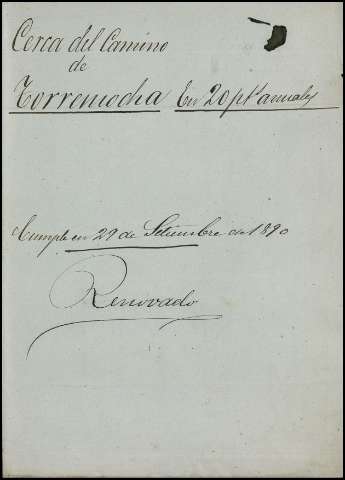 Cerca del Camino
de
Torremocha En 20 pts anuales
Cumple en 29 de Setiembre de 1890
Renovado